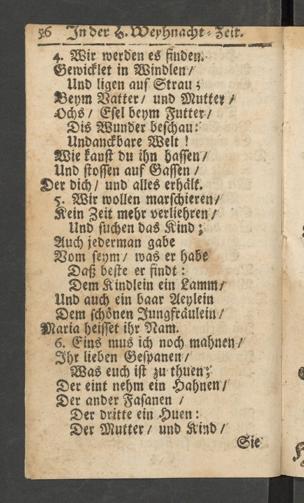 56 In der H. Weyhnacht-Zeit.
4. Wir werden es finden.
Gewicklet in Windlen/
Und ligen auf Strau;
Beym Vatter/ und Mutter/
Ochs/ Esel beym Futter/
Dis Wunder beschau:
Undanckbare Welt!
Wie kanst du ihn hassen/
Und stossen auf Gassen/
Der dich/ und alles erhält.
5. Wir wollen marschieren/
Kein Zeit mehr verliehren/
Und suchen das Kind;
Auch jederman gabe
Vom seym/ was er habe
Daß beste er findt:
Dem Kindlein ein Lamm/
Und auch ein baar Aeylein
Dem schönen Jungfräulein/
Maria heisset ihr Nam.
6. Eins mus ich noch mahnen/
Ihr lieben Gespanen/
Was euch ist zu thuen;
Der eint nehm ein Hahnen/
Der ander Fasanen/
Der dritte ein Huen:
Der Mutter/ und Kind/
Sie